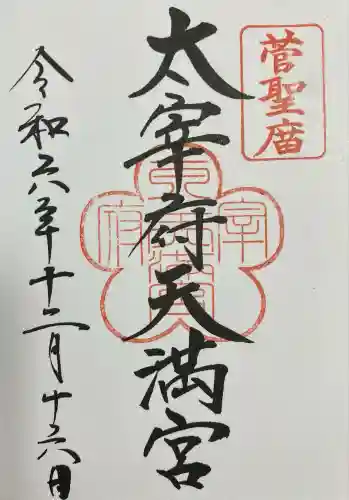 菅聖庿
太宰府天満宮
令和六年十二月十六日